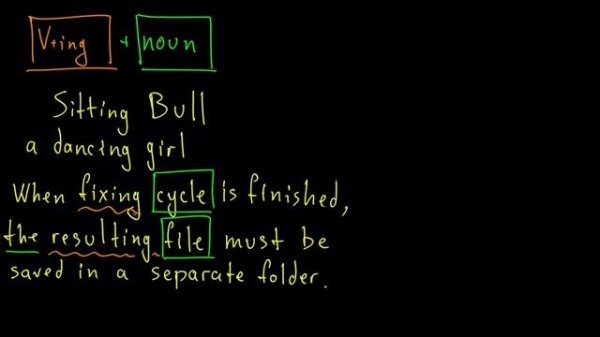 V+ing + noun
Sitting Bull
a dancing girl
When fixing cycle is finished,
the resulting file must be
saved in a separate folder.